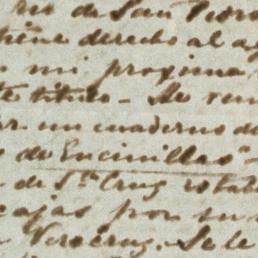 rio de San Pedro
tiene derecho al a
mi proxima
te titulo - Se rem
un cuaderno de
de Encinillas" -
de Sta Cruz rotula
cajas por su
Veracruz. Se le